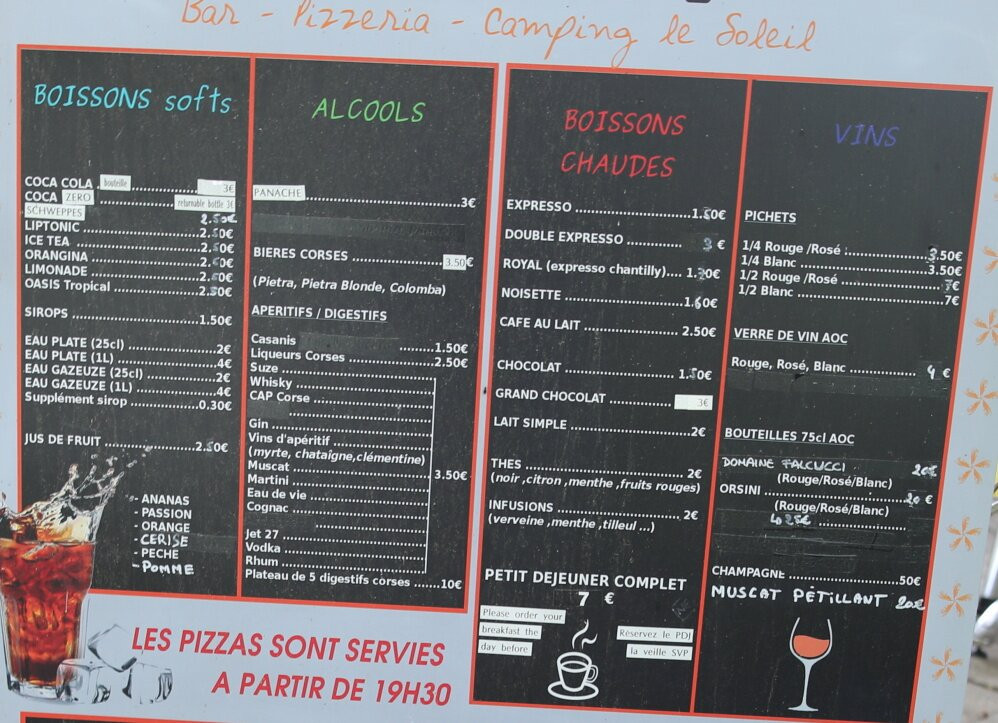 Bar - Pizzeria - Camping le Soleil
BOISSONS softs
COCA COLA bouteille 3€
COCA ZERO returnable bottle 3€
SCHWEPPES 2.50€
LIPTONIC 2.50€
ICE TEA 2.50€
ORANGINA 2.50€
LIMONADE 2.50€
OASIS Tropical 2.50€
SIROPS 1.50€
EAU PLATE (25cl) 2€
EAU PLATE (1L) 4€
EAU GAZEUZE (25cl) 2€
EAU GAZEUZE (1L) 4€
Supplément sirop 0.30€
JUS DE FRUIT 2.50€
- ANANAS
- PASSION
- ORANGE
- CERISE
- PECHE
- POMME
ALCOOLS
PANACHE 3€
BIERES CORSES 3.50€
(Pietra, Pietra Blonde, Colomba)
APERITIFS / DIGESTIFS
Casanis 1.50€
Liqueurs Corses 2.50€
Suze
Whisky
CAP Corse
Gin
Vins d'apéritif
(myrte, chataigne,clémentine)
Muscat
Martini 3.50€
Eau de vie
Cognac
Jet 27
Vodka
Rhum
Plateau de 5 digestifs corses 10€
BOISSONS
CHAUDES
EXPRESSO
DOUBLE EXPRESSO 3 €
ROYAL (expresso chantilly)
NOISETTE 1.60€
CAFE AU LAIT 2.50€
CHOCOLAT
GRAND CHOCOLAT 3€
LAIT SIMPLE 2€
THES 2€
(noir ,citron ,menthe ,fruits rouges)
INFUSIONS 2€
(verveine ,menthe ,tilleul ...)
PETIT DEJEUNER COMPLET
7 €
Please order your
breakfast the
day before
Reservez le PDJ
la veille SVP
VINS
PICHETS
1/4 Rouge /Rosé : 3.50€
1/4 Blanc 3.50€
1/2 Rouge /Rosé 7€
1/2 Blanc 7€
VERRE DE VIN AOC
Rouge, Rosé, Blanc 4 €
BOUTEILLES 75cl AOC
DOMAINE FALCUCCI 20€
(Rouge/Rosé/Blanc)
ORSINI 20 €
(Rouge/Rosé/Blanc)
CHAMPAGNE 50€
MUSCAT PÉTILLANT 20€
LES PIZZAS SONT SERVIES
A PARTIR DE 19H30